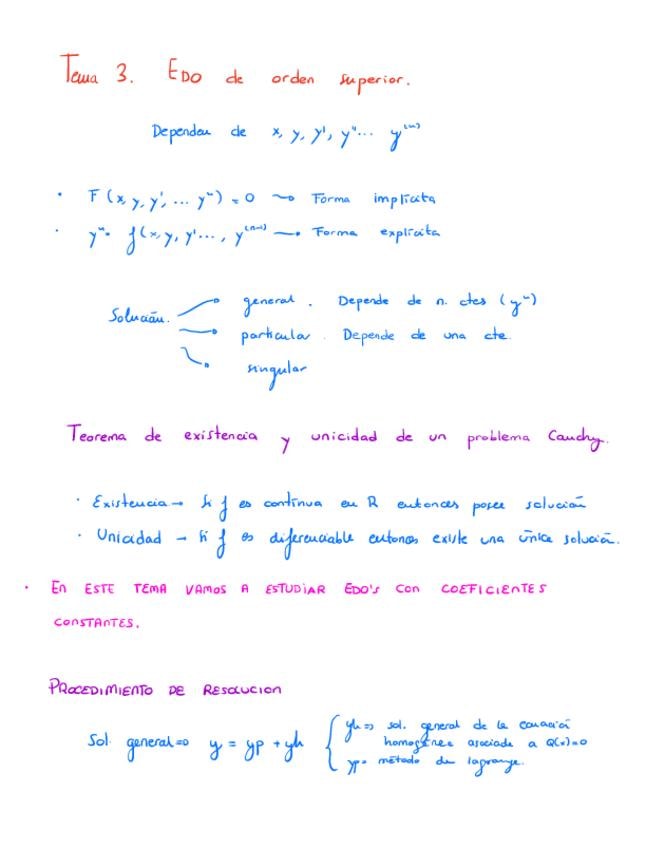 Tema 3. EDO de orden superior.
Dependen de x, y, y', y''... y⁽ⁿ⁾
· F(x, y, y', ... yⁿ) = 0 → Forma implícita
· yⁿ = f(x, y, y'..., y⁽ⁿ⁻¹⁾) → Forma explícita
general. Depende de n. ctes (yⁿ)
Solución.
particular. Depende de una cte.
singular
Teorema de existencia y unicidad de un problema Cauchy.
· Existencia → Si f es continua en R entonces posee solución
· Unicidad → Si f es diferenciable entonces existe una única solución.
· EN ESTE TEMA VAMOS A ESTUDIAR EDO'S CON COEFICIENTES
CONSTANTES.
PROCEDIMIENTO DE RESOLUCION
Sol. general => y = yp + yh { yh => sol. general de la ecuación
homogénea asociada a Q(x)=0
yp = método de lagrange.